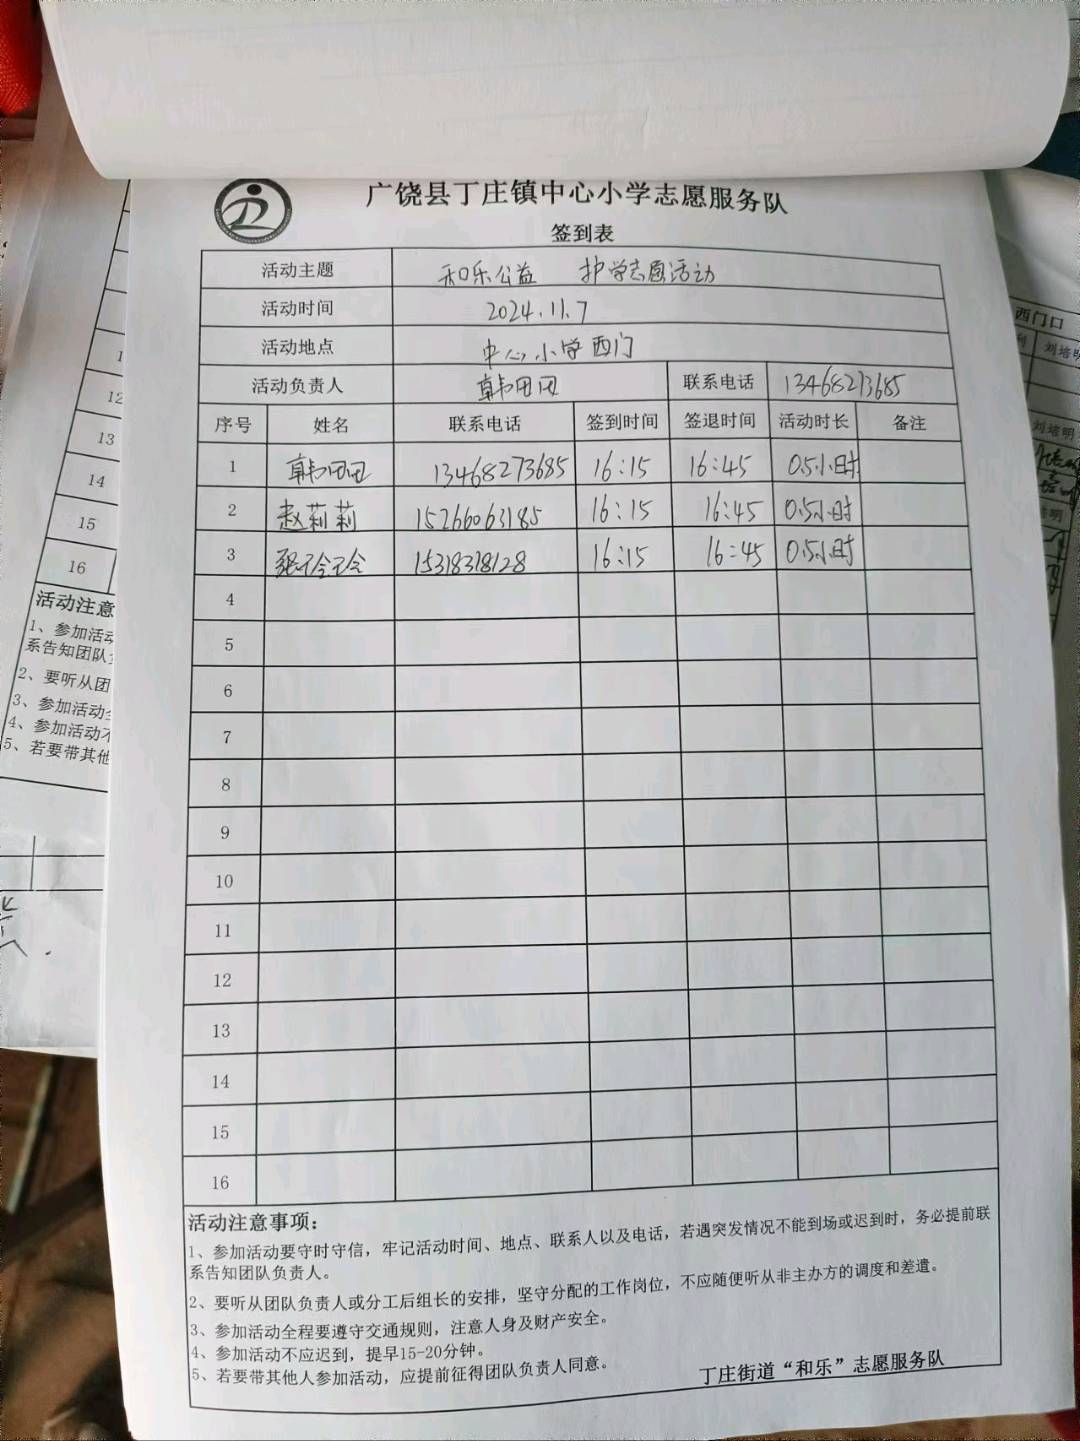 广饶县丁庄镇中心小学志愿服务队
签到表
活动主题 和乐公益 护学志愿活动
活动时间 2024.11.7
活动地点 中心小学西门
活动负责人 韩田田 联系电话 13468273685
序号 姓名 联系电话 签到时间 签退时间 活动时长 备注
1 韩田田 13468273685 16:15 16:45 0.5小时
2 赵莉莉 15266063185 16:15 16:45 0.5小时
3 15318318128 16:15 16:45 0.5小时
4
5
6
7
8
9
10
11
12
13
14
15
16
活动注意事项：
1、参加活动要守时守信，牢记活动时间、地点、联系人以及电话，若遇突发情况不能到场或迟到时，务必提前联
系告知团队负责人。
2、要听从团队负责人或分工后组长的安排，坚守分配的工作岗位，不应随便听从非主办方的调度和差遣。
3、参加活动全程要遵守交通规则，注意人身及财产安全。
4、参加活动不应迟到，提早15-20分钟。
5、若要带其他人参加活动，应提前征得团队负责人同意。
丁庄街道“和乐”志愿服务队
12
13
14
15
16
活动注意
1、参加活动
系告知团队
2、要听从团
3、参加活动
4、参加活动不
5、若要带其他
西门口
刘培明
刘培明